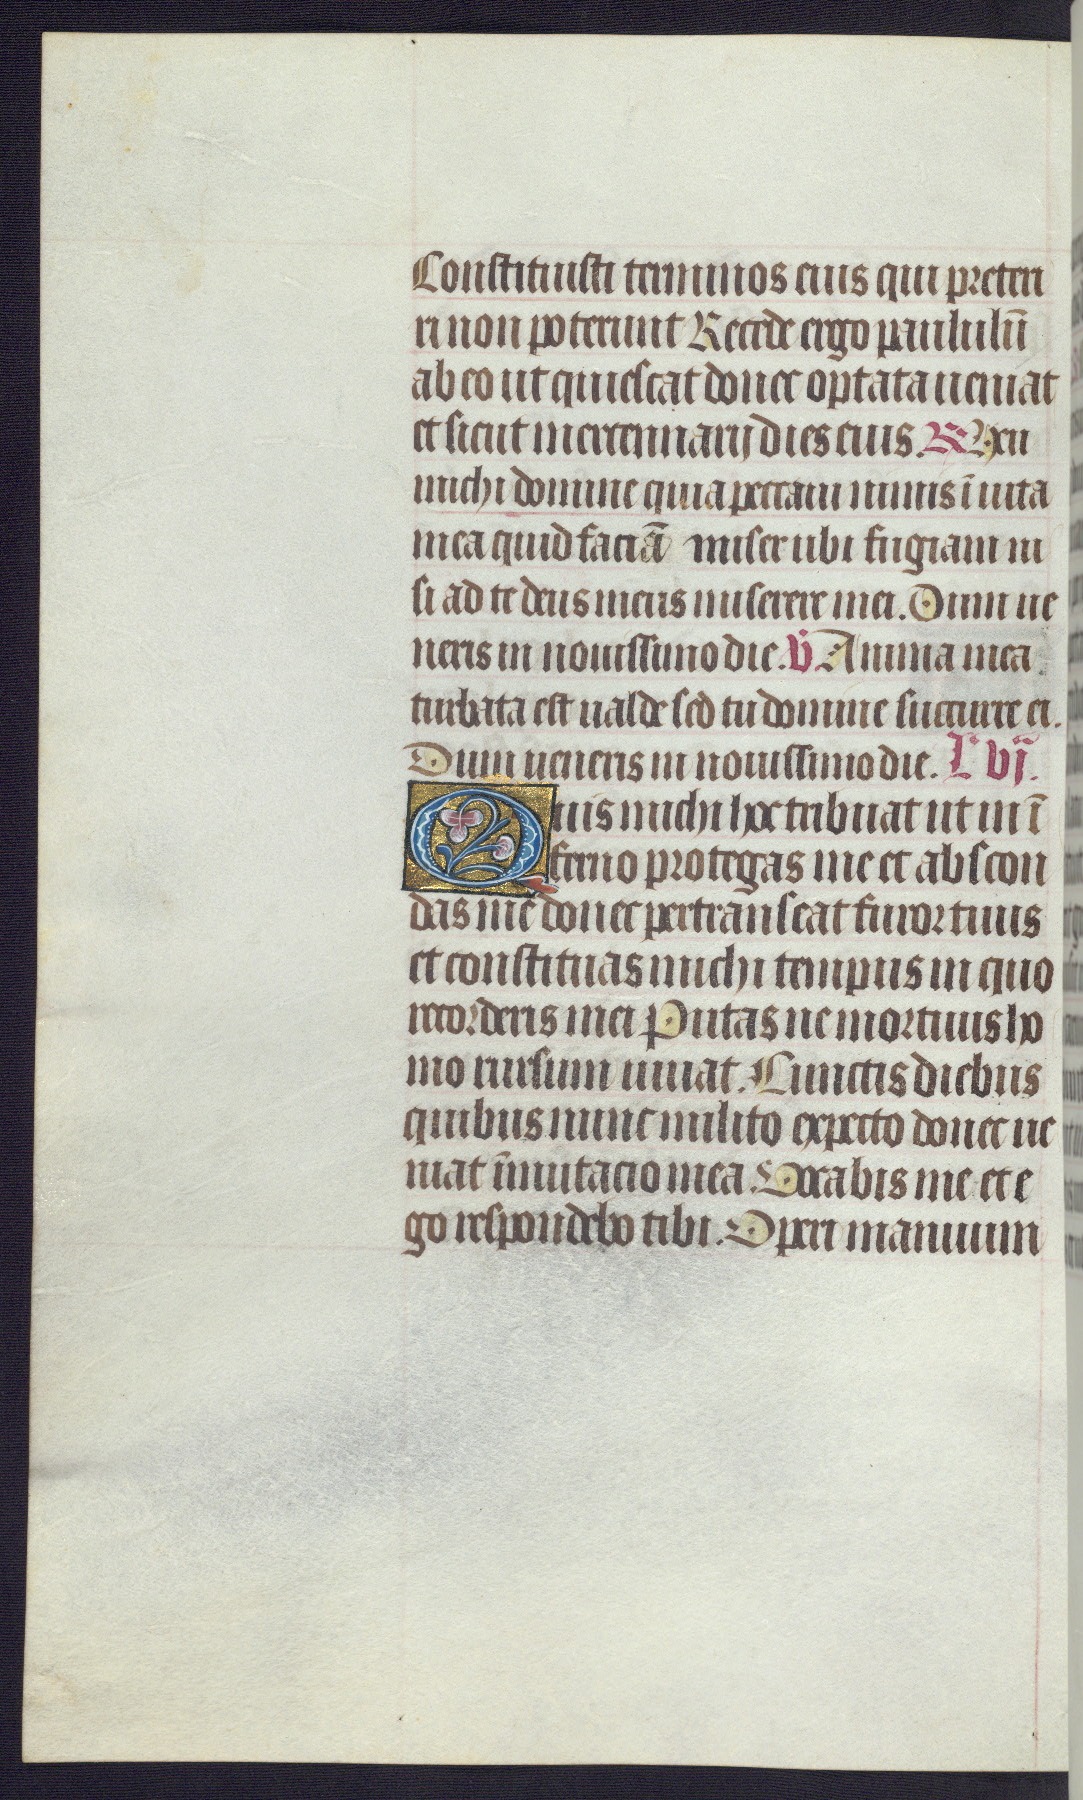 Constituisti terminos eius qui preteri
ri non poterunt Recede ergo paululū
ab eo ut quiescat donec optata ueniat
et sicut mercennarij dies eius. R Heu
michi domine quia peccaui nimis ī uita
mea quid faciā miser ubi fugiam ni
si ad te deus meus miserere mei. Dum ue
neris in nouissimo die. V Anima mea
turbata est ualde sed tu domine succurre ei.
Dum ueneris in nouissimo die. L' vj.
Quis michi hoc tribuat ut in ī
ferno protegas me et abscon
das me donec pertranseat furor tuus
et constituas michi tempus in quo
recorderis mei Putas ne mortuus ho
mo rursum uiuat. Cunctis diebus
quibus nunc milito expecto donec ue
niat īmutacio mea. Uocabis me et e
go respondebo tibi. Operi manuum